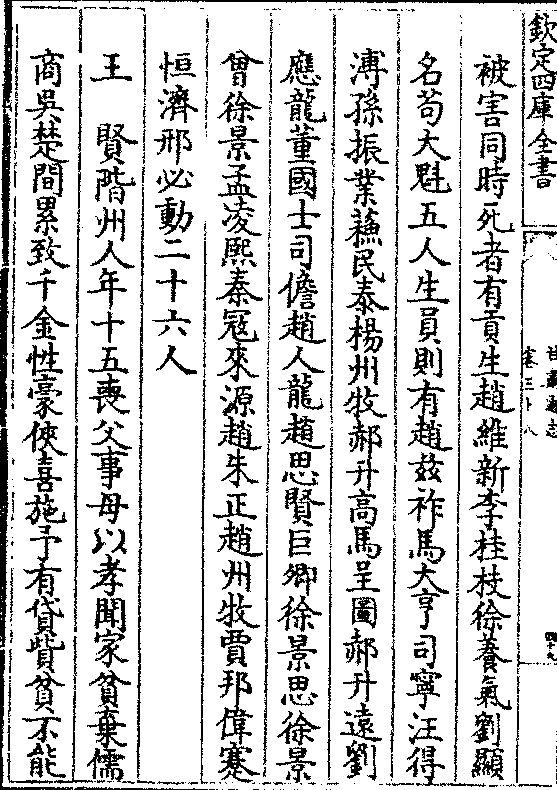 欽定四庫全書
甘肅通志
卷三十八
四十九
被害同時死者有貢生趙維新李桂枝徐養氣劉顯
名苟大魁五人生員則有趙玆祚馬大亨司寧汪得
溥孫振業蘓民泰楊州牧郝升高馬呈圖郝升遠劉
應龍董國士司儋趙人龍趙思賢巨卿徐景思徐景
曾徐景孟凌熙秦冦來源趙朱正趙州牧賈邦偉蹇
恒濟邢必動二十六人
王　賢階州人年十五喪父事母以孝聞家貧棄儒
商吳楚間累致千金性豪俠喜施予有貸貲貧不能